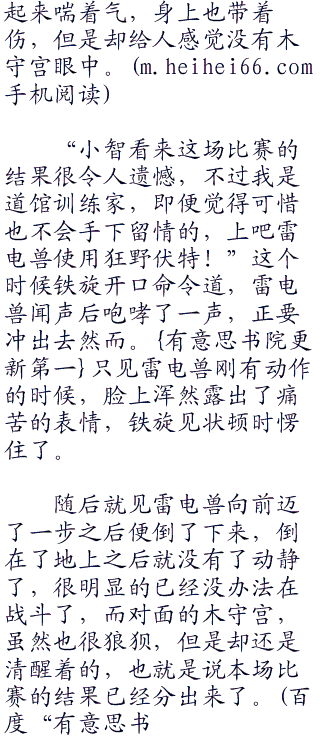 起来喘着气，身上也带着
伤，但是却给人感觉没有木
守宫眼中。(m.heihei66.com
手机阅读)
“小智看来这场比赛的
结果很令人遗憾，不过我是
道馆训练家，即便觉得可惜
也不会手下留情的，上吧雷
电兽使用狂野伏特！”这个
时候铁旋开口命令道，雷电
兽闻声后咆哮了一声，正要
冲出去然而。{有意思书院更
新第一}只见雷电兽刚有动作
的时候，脸上浑然露出了痛
苦的表情，铁旋见状顿时愣
住了。
随后就见雷电兽向前迈
了一步之后便倒了下来，倒
在了地上之后就没有了动静
了，很明显的已经没办法在
战斗了，而对面的木守宫，
虽然也很狼狈，但是却还是
清醒着的，也就是说本场比
赛的结果已经分出来了。(百
度“有意思书